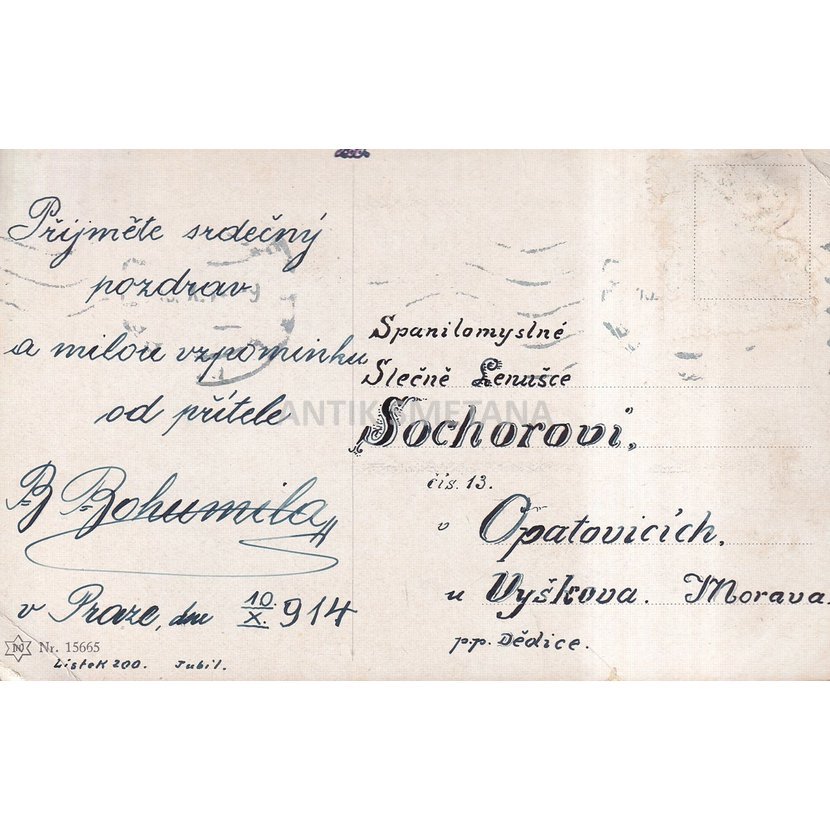 Přijměte srdečný
pozdrav
a milou vzpomínku
od přítele
B. Bohumila
v Praze, dne 10/X. 914
Nr. 15665
Lístek 200. Jubil.
Spanilomyslné
Slečně Lenušce
Sochorovi,
čís. 13.
v Opatovicích,
u Vyškova. Morava.
p.p. Dědice.
ANTIK SMETANA